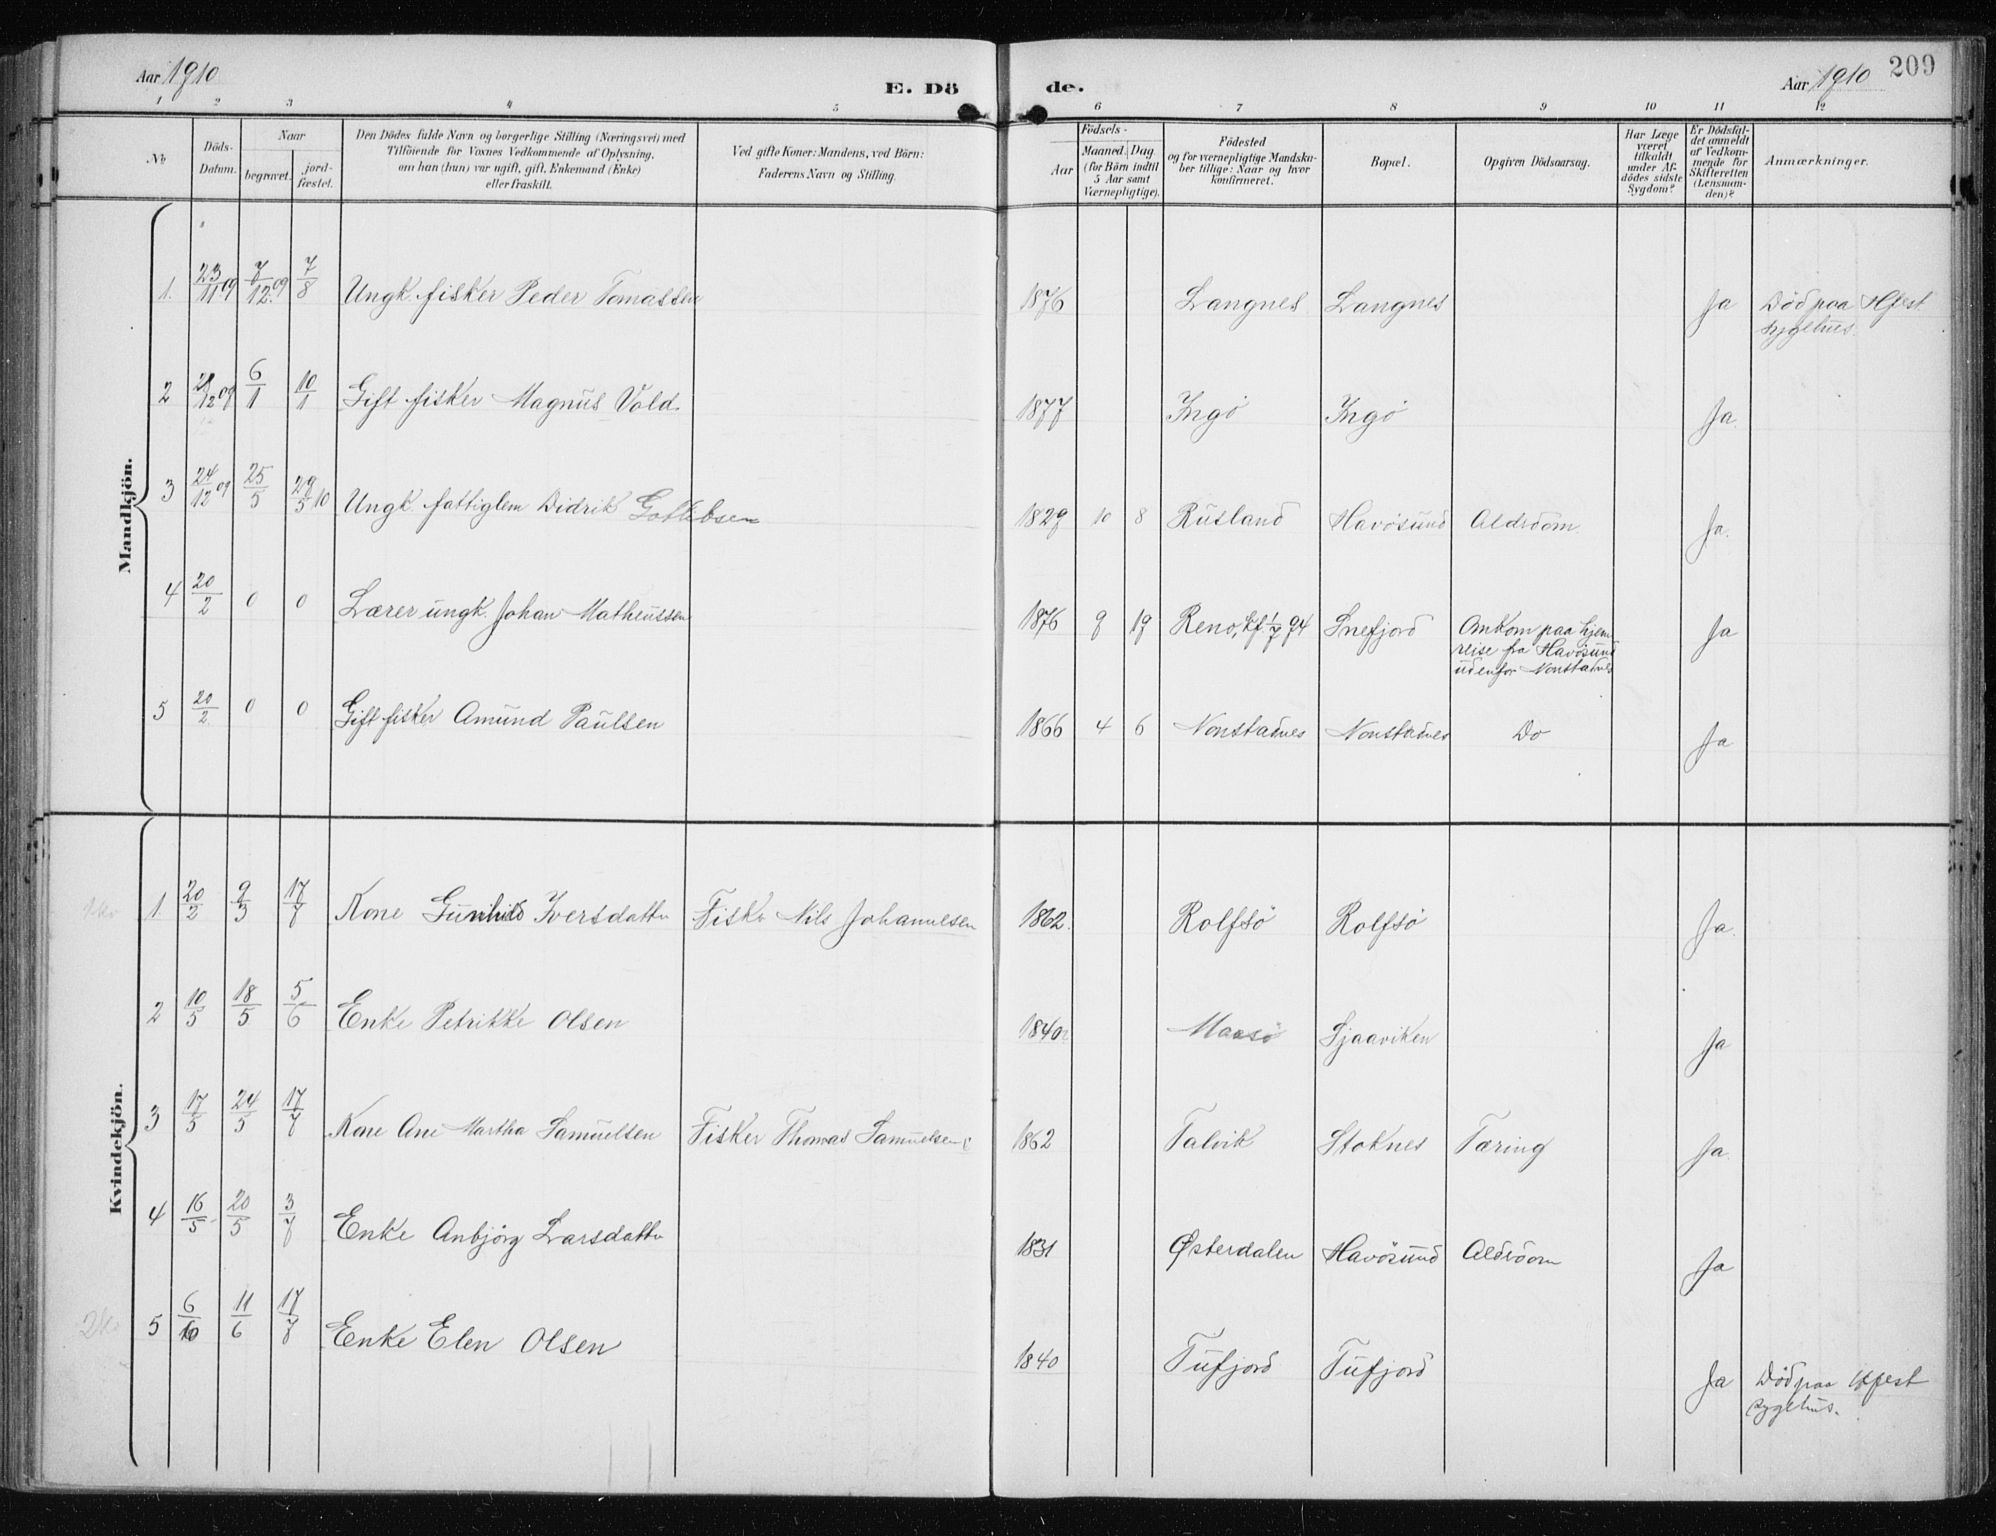 Aar 1910
E. Dö
de.
Aar 1910 209
1 2 3 4 5 6 7 8 9 10 11 12
No
Döds-
Datum.
Naar
begravet.
jord-
fæstet.
Den Dödes fulde Navn og borgerlige Stilling (Næringsvei) med
Tilföiende for Voxnes Vedkommende af Oplysning,
om han (hun) var ugift, gift, Enkemand (Enke)
eller fraskilt.
Ved gifte Koner: Mandens, ved Börn:
Faderens Navn og Stilling.
Födsels-
Aar
Maaned. Dag
(for Börn indtil
5 Aar samt
Værnepligtige).
Födested
og for værnepligtige Mandska-
ber tillige: Naar og hvor
konfirmeret.
Bopæl.
Opgiven Dödsaarsag.
Har Læge
været
tilkaldt
under Af-
dödes sidste
Sygdom?
Er Dödsfal-
det anmeldt
af Vedkom-
mende for
Skifteretten
(Lensman-
den)?
Anmærkninger.
Mandkjön.
1. 23/11 09 7/12 09 7/8 Ungk. fisker Peder Tomassen 1876 Langnes Langnes Ja Död paa Hfest
sygehus.
2 28/12 09 6/1 10/1 Gift fisker Magnus Vold. 1877 Ingö Ingö Ja.
3 24/12 09 25/5 29/5 10 Ungk. fattiglem Didrik Gottlibsen 1829 10 8 Rusland Havösund Alderdom. Ja.
4 20/2 0 0 Lærer ungk. Johan Matheussen 1876 9 19 Reno, kf. 1/7 94 Snefjord Omkom paa hjem
reise fra Havösund
udenfor Nonstadnes Ja
5 20/2 0 0 Gift fisker Amund Paulsen 1866 4 6 Nonstadnes Nonstadnes Do Ja
Kvindekjön.
1. 20/2 9/3 17/7 Kone Gunhild Iversdatter Fisker Nils Johannesen 1862. Rolfsö Rolfsö Ja.
2 10/5 18/5 5/6 Enke Petrikke Olsen 1840 Maasö Sjaaviken Ja
3 17/5 24/5 17/7 Kone Ane Martha Samuelsen Fisker Thomas Samuelsen 1862 Talvik Stoknes Tæring Ja.
4 16/5 20/5 3/7 Enke Anbjörg Larsdatter 1831 Østerdalen Havösund Alderdom Ja
5 6/6 11/6 17/7 Enke Elen Olsen 1840 Tufjord Tufjord Ja Död paa Hfest
sygehus.